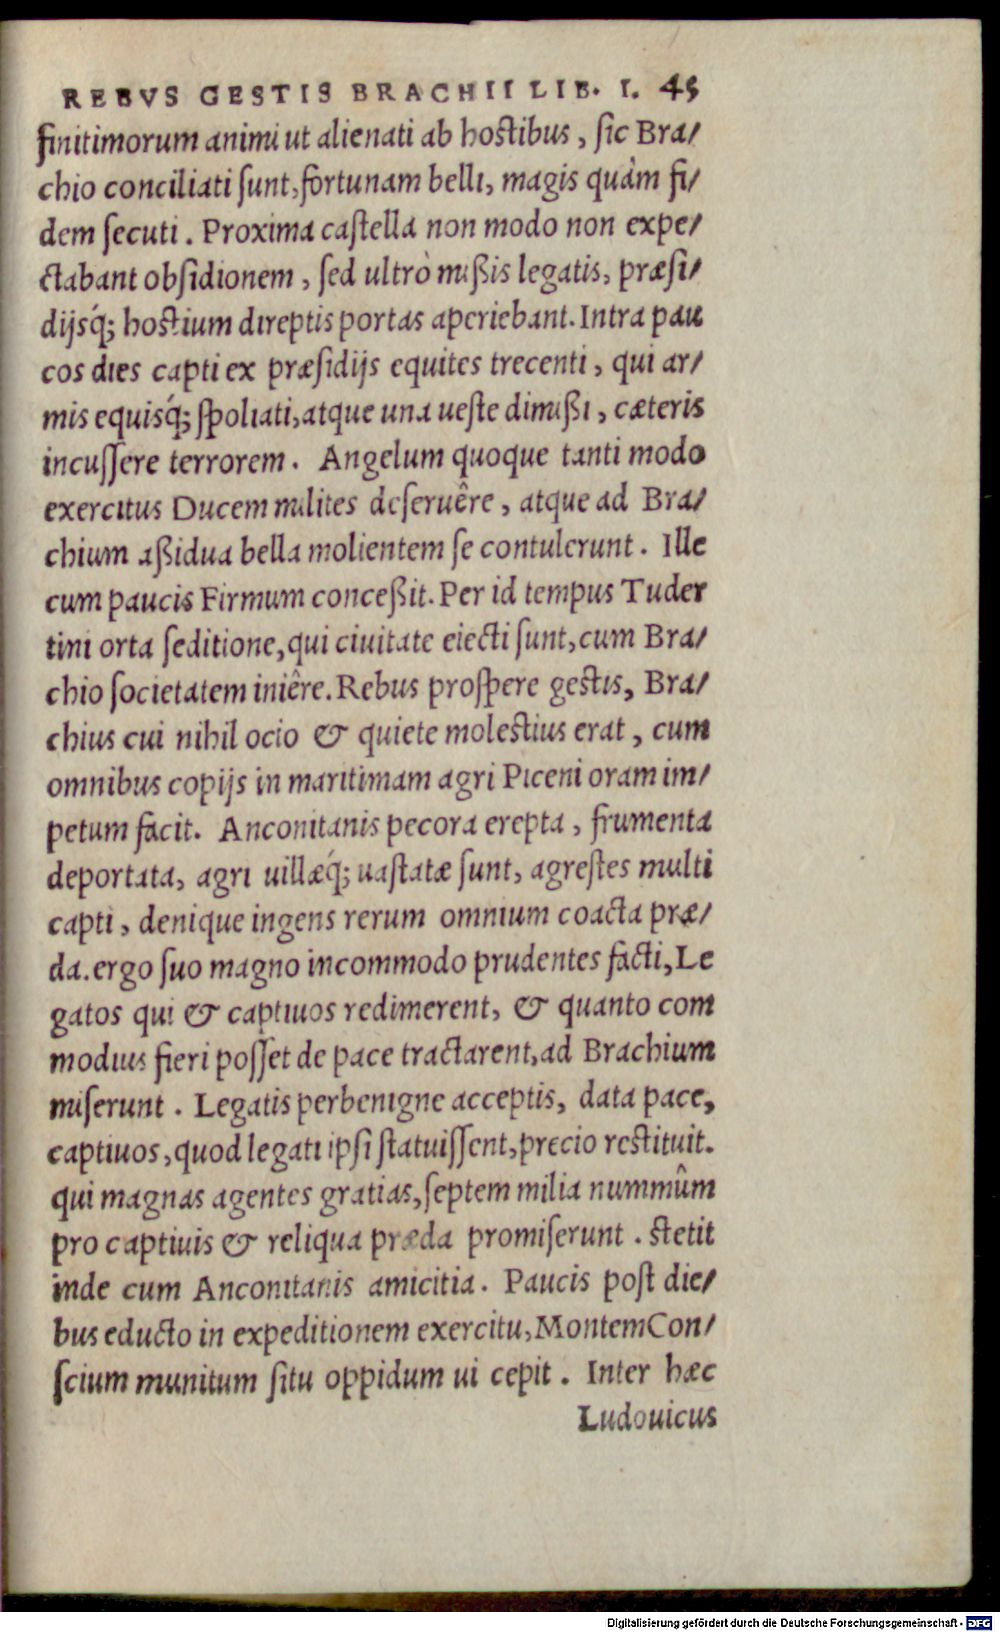 REBVS GESTIS BRACHII LIB. I. 45
finitimorum animi ut alienati ab hostibus, sic Bra/
chio conciliati sunt, fortunam belli, magis quàm fi/
dem secuti. Proxima castella non modo non expe/
ctabant obsidionem, sed ultrò mißis legatis, præsi/
dijsq́; hostium direptis portas aperiebant. Intra pau
cos dies capti ex præsidijs equites trecenti, qui ar/
mis equisq́; spoliati, atque una ueste dimißi, cæteris
incussere terrorem. Angelum quoque tanti modo
exercitus Ducem milites deseruêre, atque ad Bra/
chium aßidua bella molientem se contulerunt. Ille
cum paucis Firmum conceßit. Per id tempus Tuder
tini orta seditione, qui ciuitate eiecti sunt, cum Bra/
chio societatem iniêre. Rebus prospere gestis, Bra/
chius cui nihil ocio & quiete molestius erat, cum
omnibus copijs in maritimam agri Piceni oram im/
petum facit. Anconitanis pecora erepta, frumenta
deportata, agri uillæq́; uastatæ sunt, agrestes multi
capti, denique ingens rerum omnium coacta præ/
da. ergo suo magno incommodo prudentes facti, Le
gatos qui & captiuos redimerent, & quanto com
modius fieri posset de pace tractarent, ad Brachium
miserunt. Legatis perbenigne acceptis, data pace,
captiuos, quod legati ipsi statuissent, precio restituit.
qui magnas agentes gratias, septem milia nummûm
pro captiuis & reliqua præda promiserunt. stetit
inde cum Anconitanis amicitia. Paucis post die/
bus educto in expeditionem exercitu, MontemCon/
scium munitum situ oppidum ui cepit. Inter hæc
Ludouicus
Digitalisierung gefördert durch die Deutsche Forschungsgemeinschaft - DFG